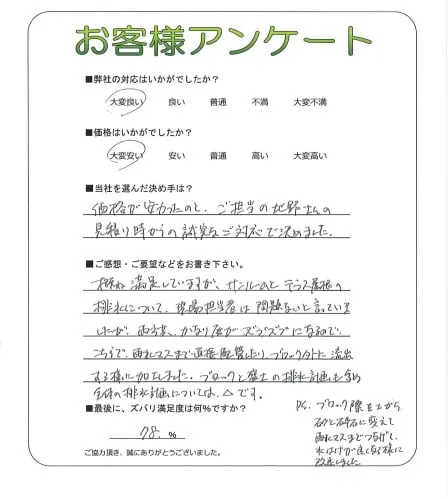 お客様アンケート
■弊社の対応はいかがでしたか?
大変良い 良い 普通 不満 大変不満
■価格はいかがでしたか?
大変安い 安い 普通 高い 大変高い
■当社を選んだ決め手は?
価格が安かったのと、ご担当の北野さんの
見積り時からの誠実なご対応で決めました。
■ご感想・ご要望などをお書き下さい。
概ね満足していますが、サンルームとテラス屋根の
排水について、現場担当者は問題ないと言っていま
したが、雨方、かなり庭がズブズブになるので、
こちらで、雨水マスまで直接配管したり、ブロック外に流出
する様に加工しました。ブロックと盛土の排水計画も含め
全体の排水計画については、△です。
■最後に、ズバリ満足度は何%ですか?
78.%
ご協力頂き、誠にありがとうございました。
P.S. ブロック際を土から
砂と砕石に変えて
雨水マスまでつなげて、
水はけが良くなる様に
改良しました。